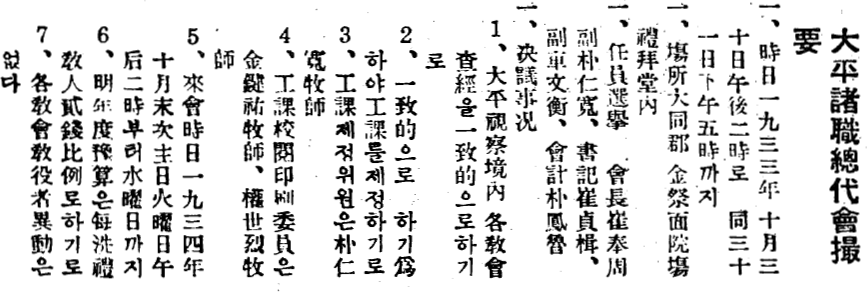 大平諸職總代會撮
要
一、時日一九三三年十月三
十日午後二時로 同三十
一日下午五時까지
一、場所大同郡 金祭面院塲
禮拜堂內
一、任員選擧 會長崔奉周
副朴仁寬、書記崔貞楫、
副車文衡、會計朴鳳魯
一、決議事況
1、大平視察境內 各敎會
査經을一致的으로하기
로
2、一致的으로 하기爲
하야工課를제정하기로
3、工課제정위원은朴仁
寬牧師
4、工課校閱印刷委員은
金鍵祐牧師、權世烈牧
師
5、來會時日一九三四年
十月末次主日火曜日午
后二時부터水曜日까지
6、明年度豫算은每洗禮
敎人貳錢比例로하기로
7、各敎會敎役者異動은
없다